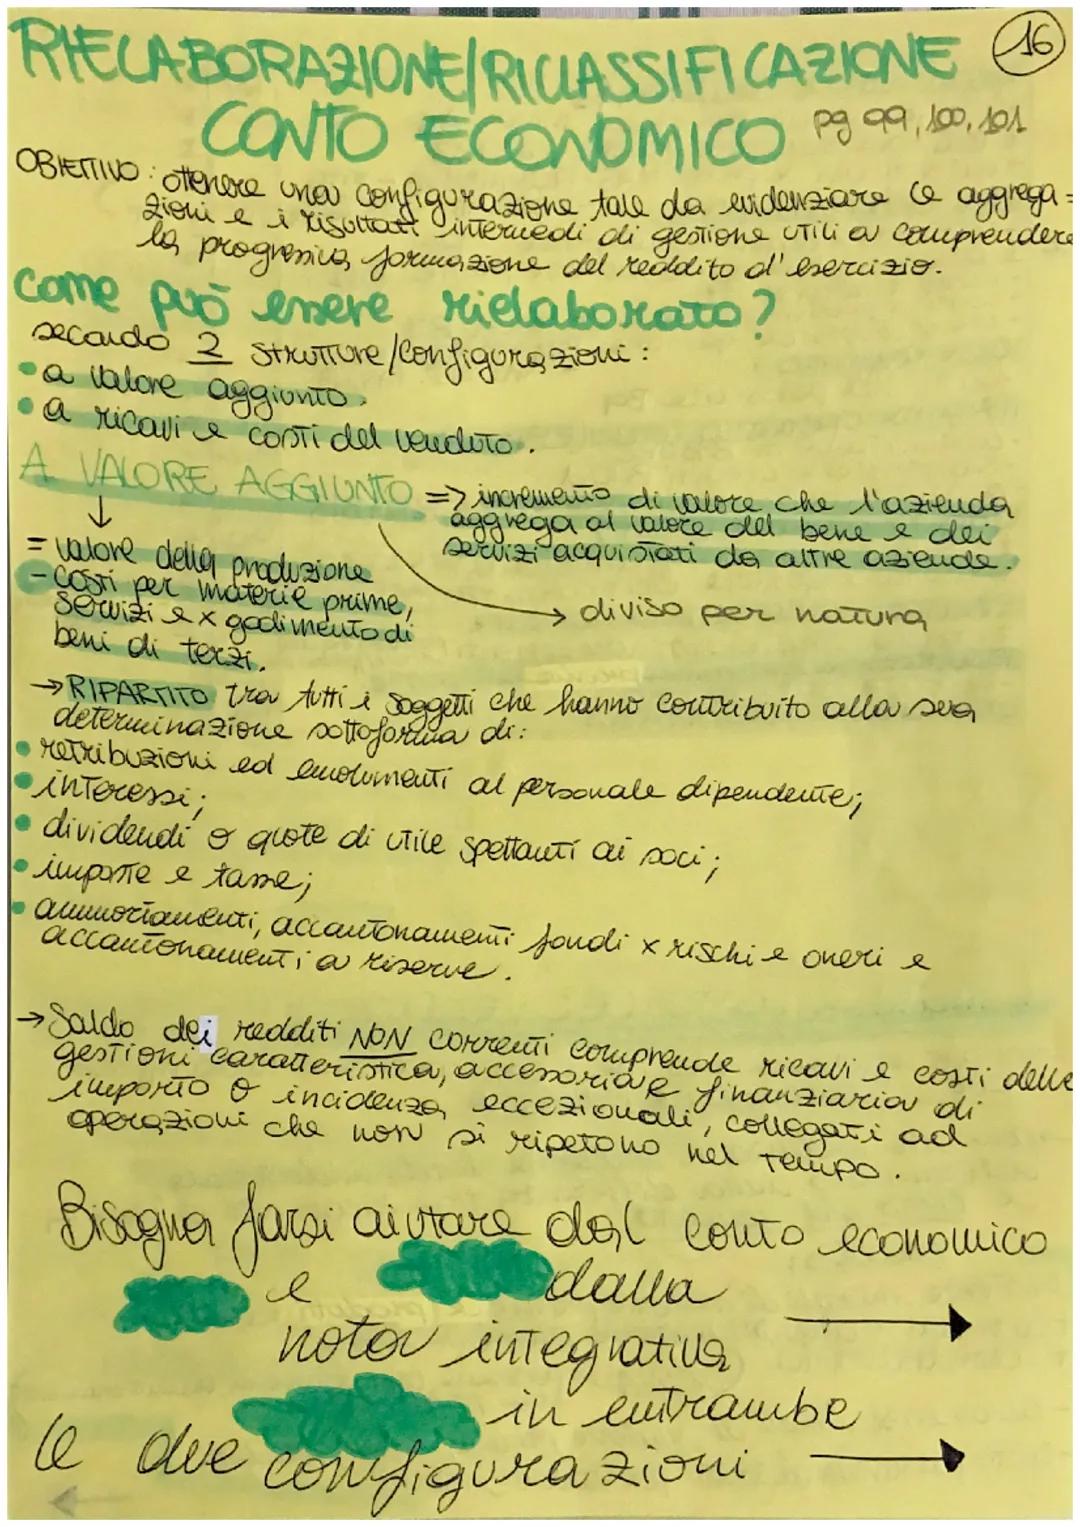 RIELABORAZIONE/RICLASSIFICAZIONE
16
CONTO ECONOMICO
pg 99, 100, 101
OBIETTIVO: ottenere una configurazione tale da evidenziare le aggrega=
zioni e i risultati intermedi di gestione utili a comprendere
la progressiva formazione del reddito d'esercizio.
come può essere rielaborato?
secondo 2 strutture/configurazioni:
• a valore aggiunto.
• a ricavi e costi del venduto.
A VALORE AGGIUNTO => incremento di valore che l'azienda
aggrega al valore del bene e dei
servizi acquistati da altre aziende.
= valore della produzione
- costi per materie prime,
servizi e x godimento di
beni di terzi.
→ diviso per natura
→ RIPARTITO tra tutti i soggetti che hanno contribuito alla sua
determinazione sottoforma di:
• retribuzioni ed emolumenti al personale dipendente;
• interessi;
• dividendi o quote di utile spettanti ai soci;
• imposte e tasse;
• ammortamenti, accantonamenti fondi x rischi e oneri e
accantonamenti a riserve.
→ Saldo dei redditi NON correnti comprende ricavi e costi delle
gestioni caratteristica, accessoria e finanziaria di
importo o incidenza eccezionali, collegati ad
operazioni che non si ripetono nel tempo.
Bisogna farsi aiutare dal conto economico
e dalla
nota integrativa
in entrambe
le due configurazioni